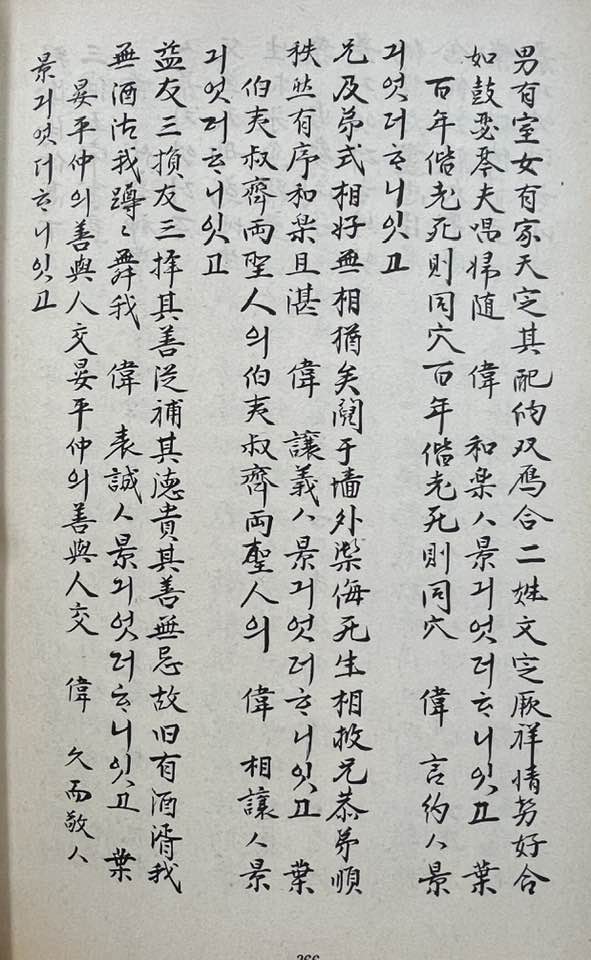 男有室女有家天定其配納双鴈合二姓文定厥祥情势好合
如鼓瑟琴夫唱婦隨 偉 和楽ㅅ景긔엇더ᄒᆞ니잇고 葉
百年偕老死則同穴百年偕老死則同穴 偉 言約ㅅ景
긔엇더ᄒᆞ니잇고
兄及弟式相好無相猶矣鬩于墻外禦侮死生相救兄恭弟順
秩然有序和楽且湛 偉 讓義ㅅ景긔엇더ᄒᆞ니잇고 葉
伯夷叔齊両聖人의伯夷叔齊両聖人의 偉 相讓ㅅ景
긔엇더ᄒᆞ니잇고
益友三損友三擇其善従補其德貴其善無忌故旧有酒湑我
無酒沽我蹲〻舞我 偉 表誠ㅅ景긔엇더ᄒᆞ니잇고 葉
晏平仲의善與人交晏平仲의善與人交 偉 久而敬ㅅ
景긔엇더ᄒᆞ니잇고